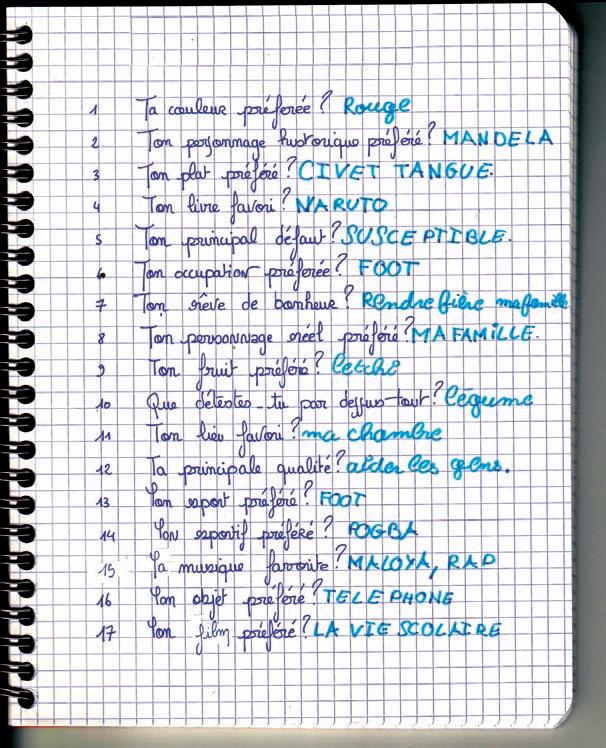 1 Ta couleur préferée? Rouge
2 Ton personnage historique préféré? MANDELA
3 Ton plat préféré? CIVET TANGUE.
4 Ton livre favori? NARUTO
5 Ton principal défaut? SUSCEPTIBLE.
6 Ton occupation préferée? FOOT
7 Ton rêve de bonheur? Rendre fière ma famille
8 Ton personnage réel préféré? MA FAMILLE.
9 Ton fruit préféré? letchi
10 Que détestes-tu par dessus-tout? légume
11 Ton lieu favori? ma chambre
12 Ta principale qualité? aider les gens.
13 Ton sport préféré? FOOT
14 Ton sportif préféré? POGBA
15 Ta musique favorite? MALOYA, RAP
16 Ton objet préféré? TELEPHONE
17 Ton film préféré? LA VIE SCOLAIRE